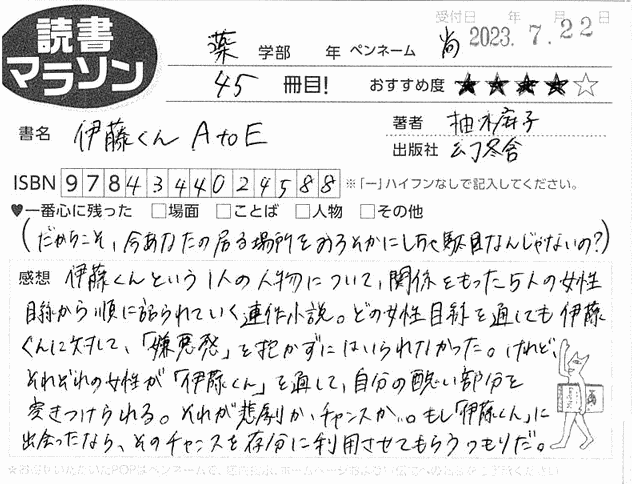 読書
マラソン
受付日 年 月 日
2023.7.22
薬 学部 年 ペンネーム 尚
45 冊目! おすすめ度 ★★★★☆
書名 伊藤くん A to E
著者 柚木麻子
出版社 幻冬舎
ISBN 9784344024588 ※「ー」ハイフンなしで記入してください。
♥一番心に残った □場面 □ことば □人物 □その他
(だからこそ、今あなたの居る場所をおろそかにしちゃ駄目なんじゃないの?)
感想 伊藤くんという1人の人物について、関係をもった5人の女性
目線から順に語られていく連作小説。どの女性目線を通しても伊藤
くんに対して、「嫌悪感」を抱かずにはいられなかった。けれど、
それぞれの女性が「伊藤くん」を通して、自分の醜い部分を
突きつけられる。それが悲劇か、チャンスか…。もし「伊藤くん」に
出会ったなら、そのチャンスを存分に利用させてもらうつもりだ。